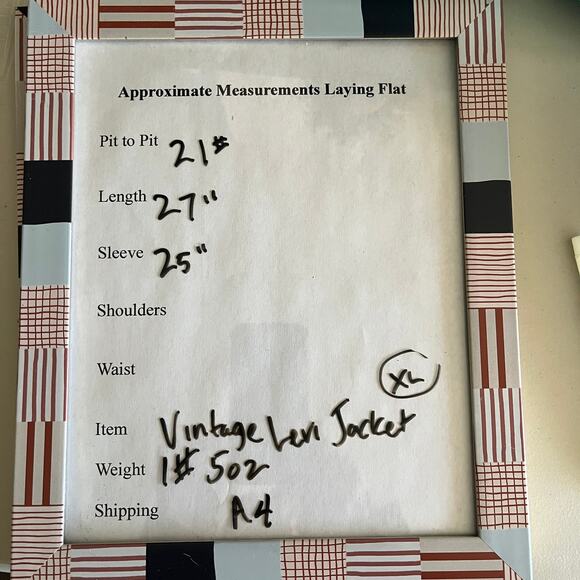 Approximate Measurements Laying Flat
Pit to Pit 21#
Length 27"
Sleeve 25"
Shoulders
Waist
XL
Item Vintage Levi Jacket
Weight 1# 5oz
Shipping A4